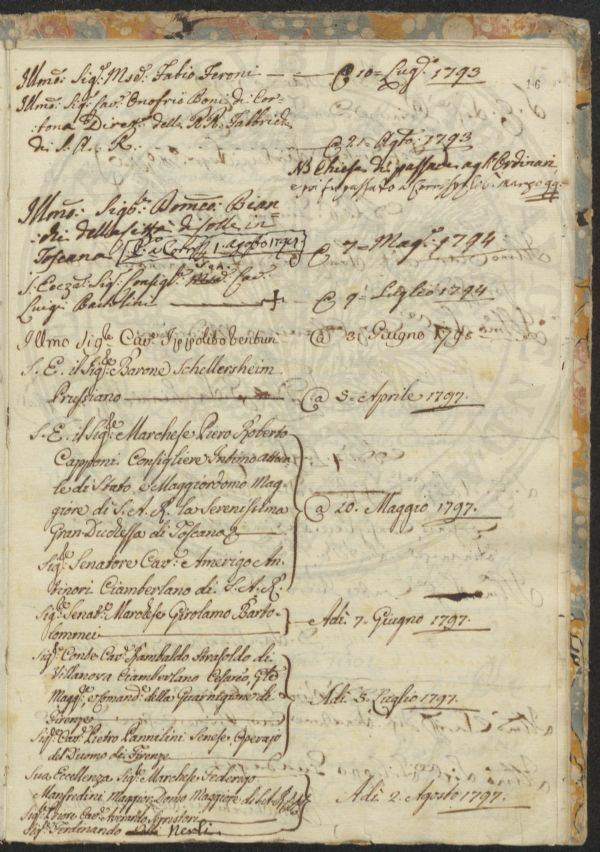 16
Illmo: Sigr. Md. Fabio Feroni — @ 10= Lugo. 1793
Illmo: Sigr. Cav. Onofrio Boni di Cor-
tona Dirett. delle RR. Fabbriche
di S. A. R. @ 21. Agto: 1793
NB Chiese di passare agl'Ordinari
e poi fu passato Marzo 99
Illmo: Sigr. Domco. Bian
chi della Città di Colle in
Toscana 1. Agosto @ 7= Mago. 1794
S. Eccza. Sigr. Consigre. Sen. Cav.
Luigi Bartolini — + @ 9= Luglio 1794
Illmo Sigre Cavr. Ippolito Venturi @ 3 Giugno
S. E. il Sigre. Barone Schellersheim
Prussiano — @ 5. Aprile 1797.
S. E. il Sigre. Marchese Piero Roberto
Capponi. Consigliere Intimo attua
le di Stato e Maggiordomo Mag
giore di S. A. R. la Serenissima
Gran Duchessa di Toscana @ 20. Maggio 1797.
Sigr. Senatore Cavr. Amerigo An
tinori Ciamberlano di S. A. R.
Sigr. Senatr. Marchese Girolamo Barto-
lommei — Adi 7. Giugno 1797.
Sigr. Conte Cavr. Rambaldo Strasoldo di
Villanova Ciamberlano Cesareo, 
Maggre. e Comandte. della Guarnigione di
Firenze Adi. 5. Luglio 1797.
Sigr. Cavr. Pietro Pannilini Senese Operajo
del Duomo di Firenze
Sua Eccellenza Sigr. Marchese Federigo
Manfredini Maggior Domo Maggiore di Adi. 2. Agosto 1797.
Sigr. Priore Cavr.
Sigr. Ferdinando Nerli